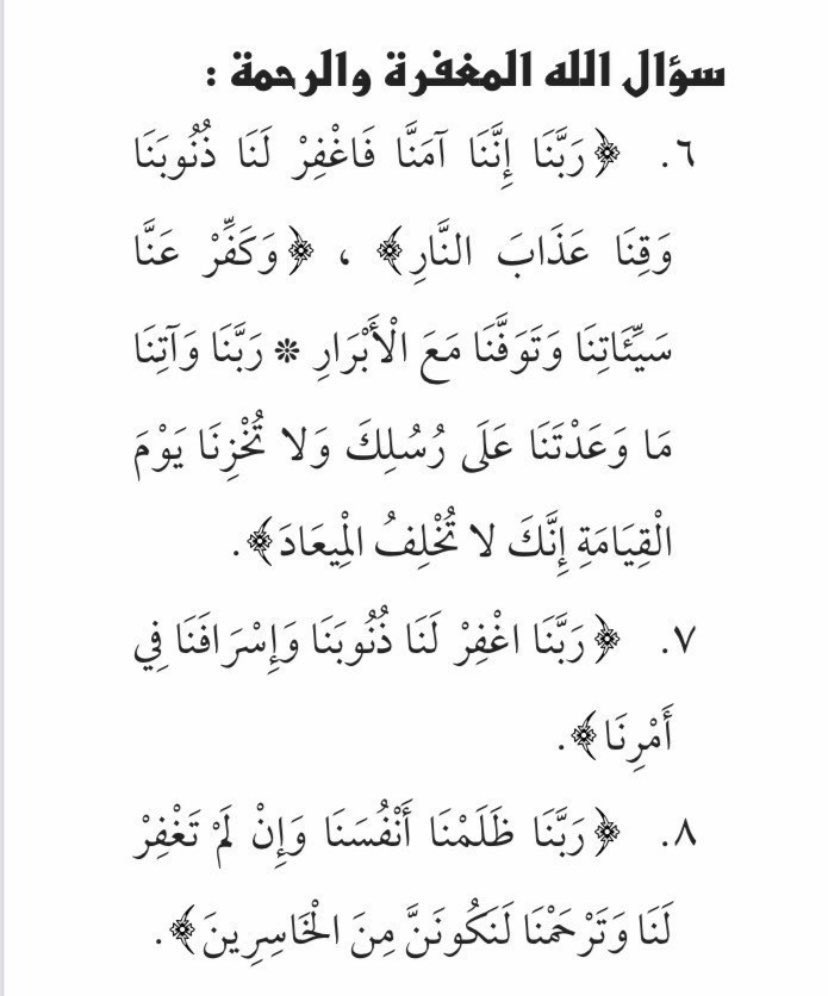 سؤال الله المغفرة والرحمة :
٦. ﴿رَبَّنَا إِنَّنَا آمَنَّا فَاغْفِرْ لَنَا ذُنُوبَنَا
وَقِنَا عَذَابَ النَّارِ﴾ ، ﴿وَكَفِّرْ عَنَّا
سَيِّئَاتِنَا وَتَوَفَّنَا مَعَ الْأَبْرَارِ * رَبَّنَا وَآتِنَا
مَا وَعَدْتَنَا عَلَى رُسُلِكَ وَلا تُخْزِنَا يَوْمَ
الْقِيَامَةِ إِنَّكَ لا تُخْلِفُ الْمِيعَادَ﴾.
٧. ﴿رَبَّنَا اغْفِرْ لَنَا ذُنُوبَنَا وَإِسْرَافَنَا فِي
أَمْرِنَا﴾.
٨. ﴿رَبَّنَا ظَلَمْنَا أَنْفُسَنَا وَإِنْ لَمْ تَغْفِرْ
لَنَا وَتَرْحَمْنَا لَنَكُونَنَّ مِنَ الْخَاسِرِينَ﴾.